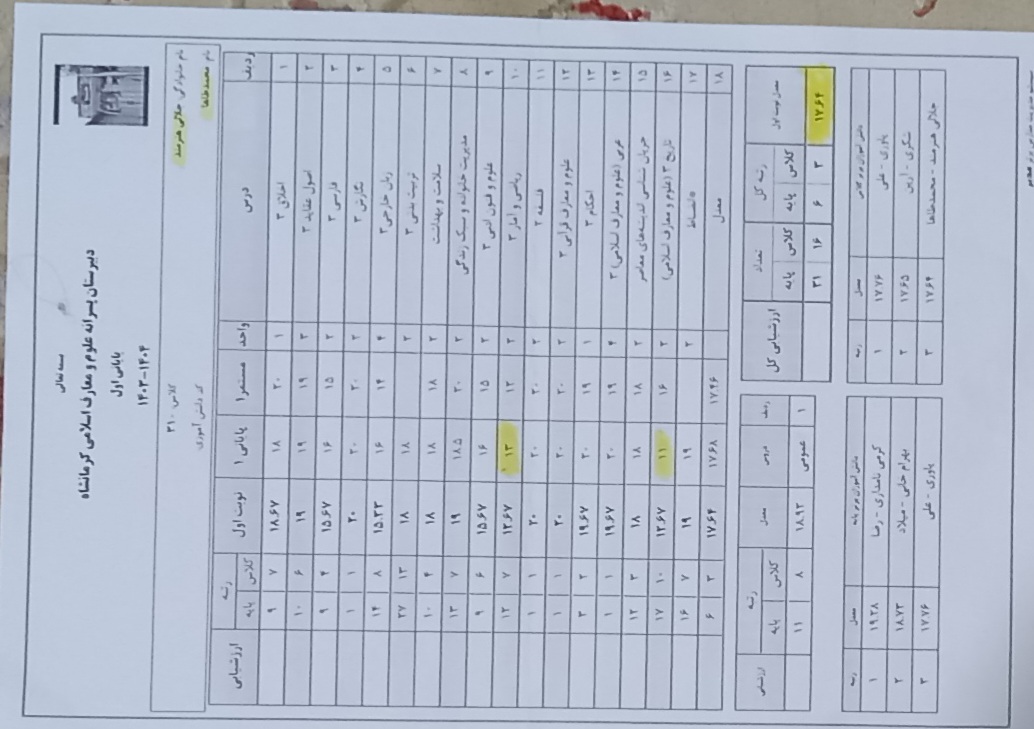 بسمه تعالی
دبیرستان پسرانه علوم و معارف اسلامی کرمانشاه
پایانی اول
۱۴۰۳-۱۴۰۴
نام محمدطاها کلاس ۳۱۰
نام خانوادگی جلالی هنرمند کد دانش آموزی
ردیف درس واحد مستمر۱ پایانی ۱ نوبت اول رتبه ارزشیابی
کلاس پایه
۱ اخلاق ۳ ۱ ۲۰ ۱۸ ۱۸.۶۷ ۷ ۹
۲ اصول عقاید ۳ ۳ ۱۹ ۱۹ ۱۹ ۶ ۱۰
۳ فارسی ۳ ۲ ۱۵ ۱۶ ۱۵.۶۷ ۴ ۹
۴ نگارش ۳ ۲ ۲۰ ۲۰ ۲۰ ۱ ۱
۵ زبان خارجی ۳ ۴ ۱۴ ۱۶ ۱۵.۳۳ ۸ ۱۴
۶ تربیت بدنی ۳ ۲ ۱۸ ۱۸ ۱۳ ۲۷
۷ سلامت و بهداشت ۲ ۱۸ ۱۸ ۱۸ ۴ ۱۰
۸ مدیریت خانواده و سبک زندگی ۲ ۲۰ ۱۸.۵ ۱۹ ۷ ۱۳
۹ علوم و فنون ادبی ۳ ۲ ۱۵ ۱۶ ۱۵.۶۷ ۶ ۹
۱۰ ریاضی و آمار ۳ ۲ ۱۲ ۱۳ ۱۲.۶۷ ۷ ۱۲
۱۱ فلسفه ۲ ۲ ۲۰ ۲۰ ۲۰ ۱ ۱
۱۲ علوم و معارف قرآنی ۳ ۲ ۲۰ ۲۰ ۲۰ ۱ ۱
۱۳ احکام ۳ ۱ ۱۹ ۲۰ ۱۹.۶۷ ۲ ۳
۱۴ عربی (علوم و معارف اسلامی) ۳ ۴ ۱۹ ۲۰ ۱۹.۶۷ ۱ ۱
۱۵ جریان شناسی اندیشه‌های معاصر ۲ ۱۸ ۱۸ ۱۸ ۳ ۱۲
۱۶ تاریخ ۳ (علوم و معارف اسلامی) ۲ ۱۶ ۱۱ ۱۲.۶۷ ۱۰ ۱۷
۱۷ انضباط ۲ ۱۹ ۱۹ ۷ ۱۶
۱۸ معدل ۱۷.۴۶ ۱۷.۶۸ ۱۷.۶۴ ۳ ۶
معدل نوبت اول رتبه کل تعداد ارزشیابی کل
کلاس پایه کلاس پایه
۱۷.۶۴ ۳ ۶ ۱۶ ۳۱
ردیف دروس معدل رتبه ارزشیابی
کلاس پایه
۱ عمومی ۱۸.۹۳ ۸ ۱۱
دانش آموزان برتر کلاس معدل رتبه
یاوری - علی ۱۷.۷۶ ۱
شکری - آرین ۱۷.۶۵ ۲
جلالی هنرمند - محمدطاها ۱۷.۶۴ ۳
دانش آموزان برتر پایه معدل رتبه
کرمی نامداری - رضا ۱۹.۲۸ ۱
بهرام خانی - میلاد ۱۸.۷۳ ۲
یاوری - علی ۱۷.۷۶ ۳